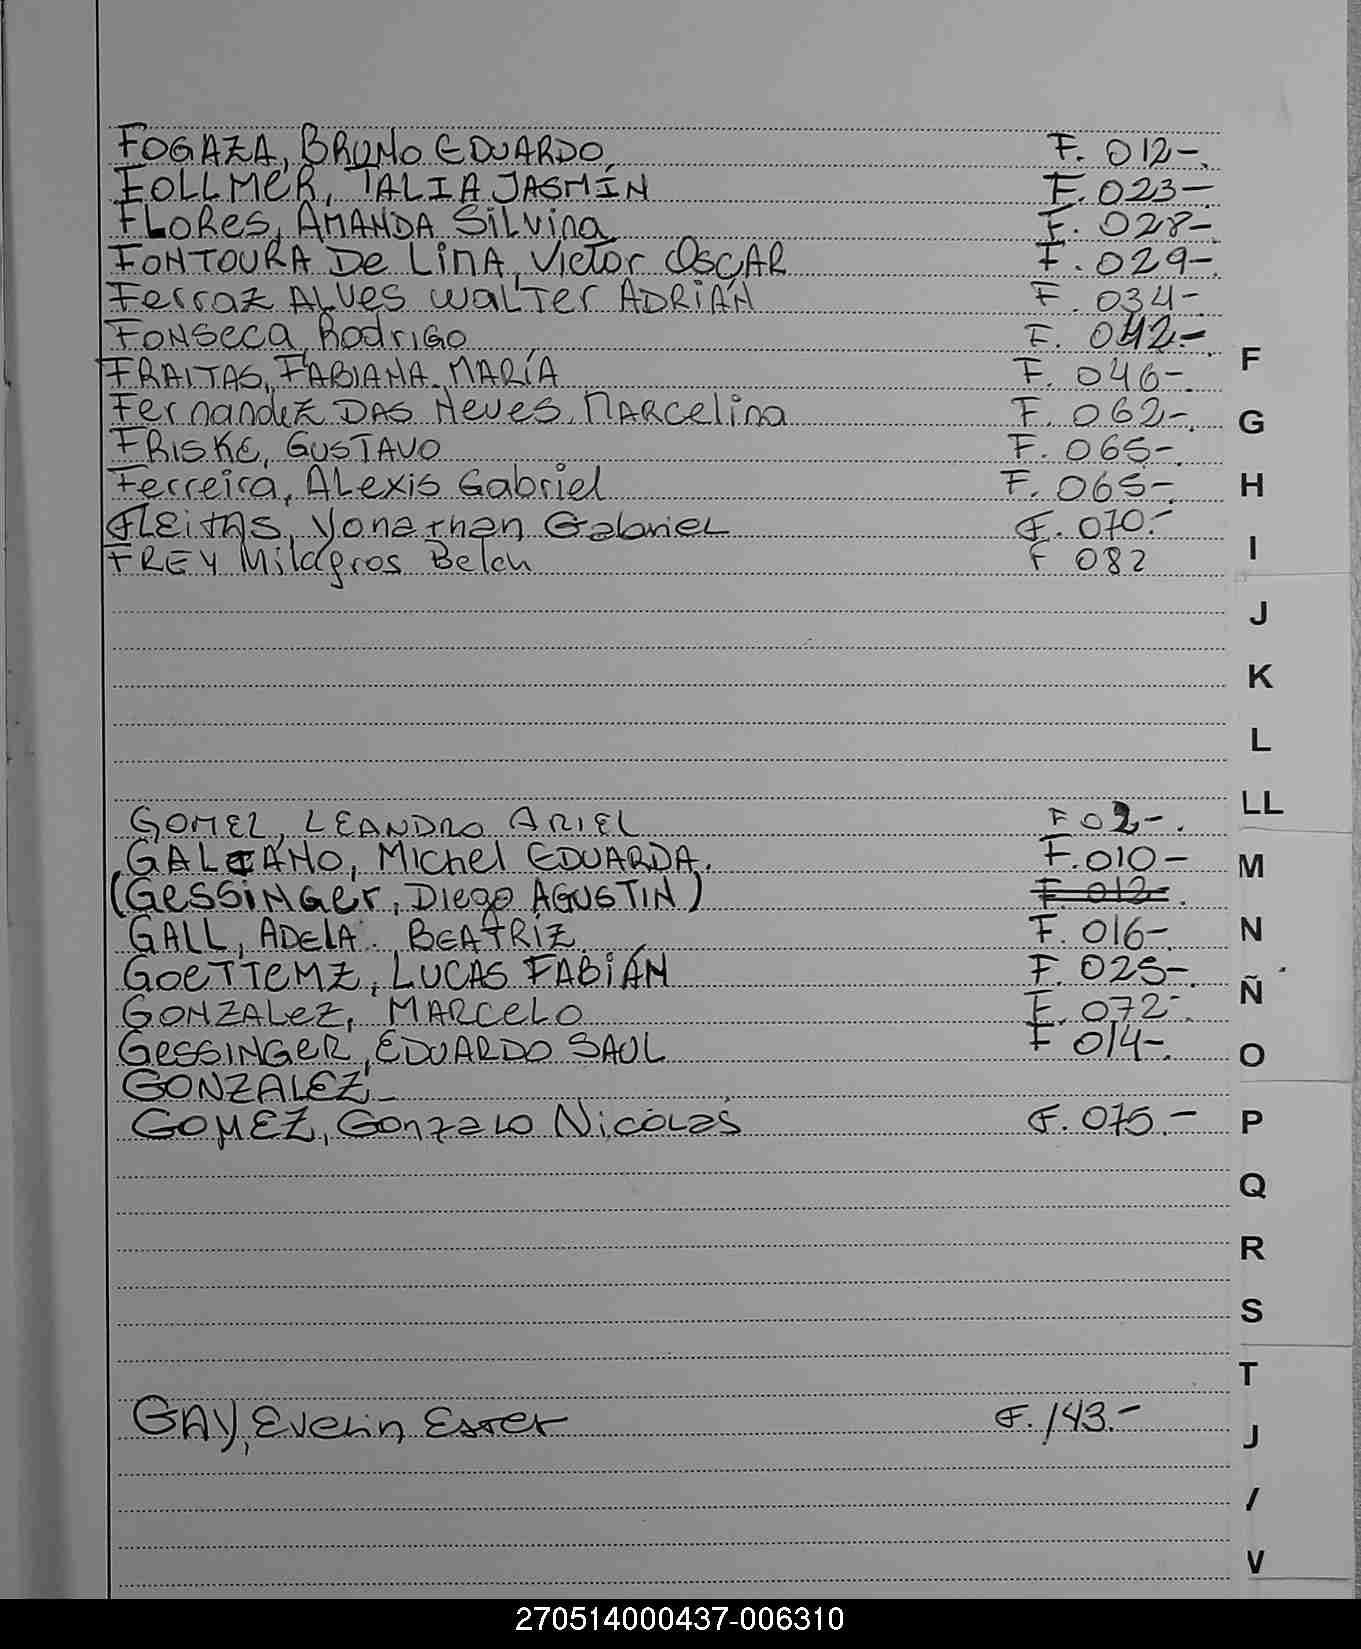 FOGAZA, BRUNO EDUARDO F. 012-.
FOLLMER, TALIA JASMÍN F. 023-.
FLORES, AMANDA SILVINA F. 028-.
FONTOURA De LIMA, Victor OSCAR F. 029-.
Ferraz ALVES WALTER ADRIÁN F 034-
FONSECA, RODRIGO F. 042-.
FRAITAS, FABIANA MARÍA F. 046-.
Fernandez DAS NEVES, MARCELINA F. 062-.
FRISKE, GUSTAVO F. 065-.
Ferreira, ALEXIS Gabriel F. 065-.
FLEITAS, Yonathan Gabriel F. 070.-
FREY Milagros Belen F 082
GOMEZ, LEANDRO ARIEL F 02-.
GALEANO, Michel EDUARDA. F. 010-
(GESSINGER, Diego AGUSTIN) F. 012-.
GALL, ADELA BEATRIZ F. 016-.
GOETTEMZ, LUCAS FABIÁN F. 025-.
GONZALEZ, MARCELO F. 072-.
GESSINGER, EDUARDO SAUL F 014-.
GONZALEZ,
GOMEZ, Gonzalo Nicolás F. 075.-
GAY, Evelin Ester F. 143.-
F
G
H
I
J
K
L
LL
M
N
Ñ
O
P
Q
R
S
T
J
/
V
270514000437-006310